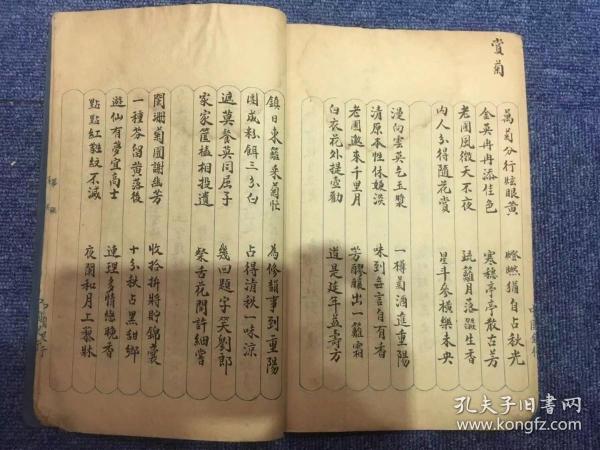 賞菊
萬菊分行眩眼黃 瞪瞪猶自占秋光
金英冉冉添佳色 寒穗亭亭散古芳
老圃風微天不夜 疏籬月落澀生香
內人分得隨花賞 星斗參橫樂未央
漫向雲英乞玉漿 一樽菊酒進重陽
清原本性休嫌淡 味到無言自有香
老圃邀來千里月 芳醪釀出一籬霜
白衣花外提壺勸 道是延年益壽方
鎮日東籬采菊忙 為修韻事到重陽
團成粉餌三分白 占得清秋一味涼
遮莫餐英同屈子 幾回題字笑劉郎
家家筐榼相投遺 縈舌花間許細嘗
闌珊菊圃謝幽芳 收拾拚將貯錦囊
一種芬留黃落後 十分秋占黑甜鄉
遊仙有夢宜高士 連理多情總晚香
點點紅黏紋不滅 夜闌和月上藜牀
孔夫子旧书网
www.kongfz.com